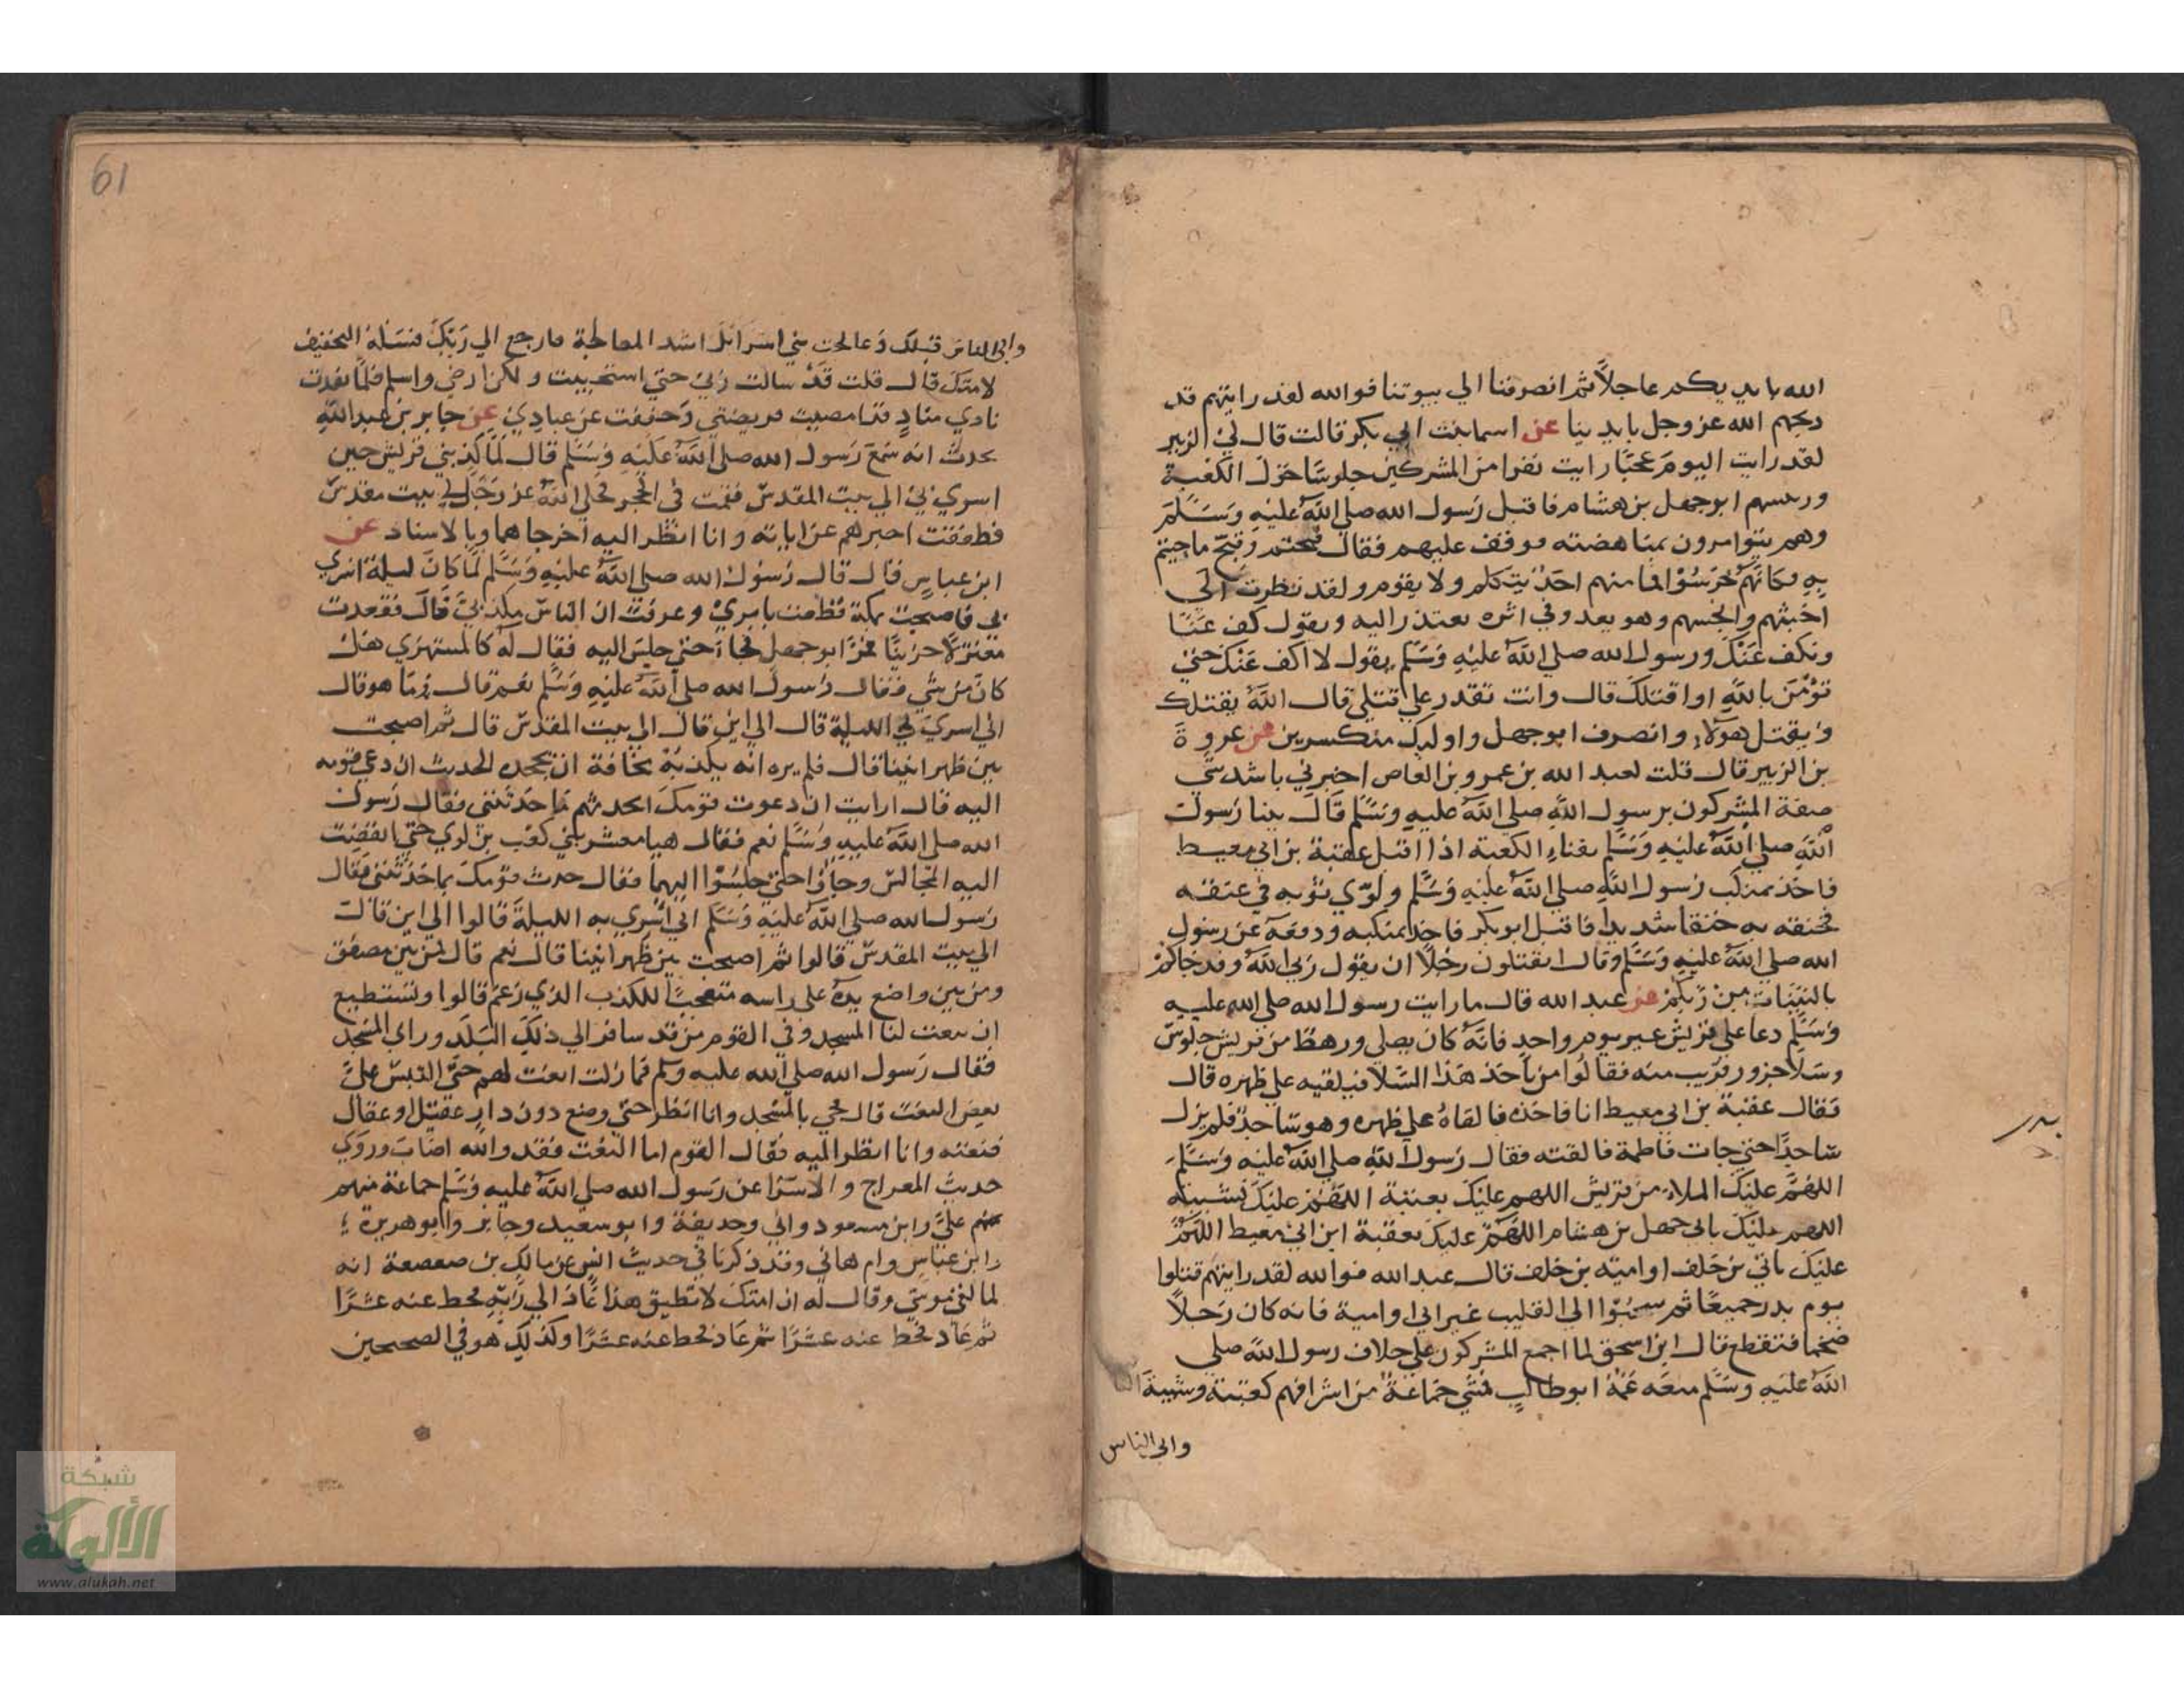 الله بايديكم عاجلا ثم انصرفنا الي بيوتنا فوالله لقد رايتهم قد
ذبحهم الله عز وجل بايدينا عن اسما بنت ابي بكر قالت قال لي الزبير
لقد رايت اليوم عجبا رايت نفرا من المشركين جلوسا حول الكعبة
ورءسهم ابو جهل بن هشام فاقبل رسول الله صلي الله عليه وسلم
وهم يتوامرون بمناهضته فوقف عليهم فقال قبحتم وقبح ما جيتم
به فكانهم خرسوا فما منهم احد يتكلم ولا يقوم ولقد نظرت الي
اخبثهم وانجسهم وهو يعدو في اثره يعتذر اليه ويقول كف عنا
ونكف عنك ورسول الله صلي الله عليه وسلم يقول لا اكف عنك حتي
تؤمن بالله او اقتلك قال وانت تقدر علي قتلي قال الله يقتلك
ويقتل هولاء وانصرف ابو جهل واوليك منكسرين عن عروة
بن الزبير قال قلت لعبد الله بن عمرو بن العاص اخبرني باشد شي
صنعة المشركون برسول الله صلي الله عليه وسلم قال بينا رسول
الله صلي الله عليه وسلم بفناء الكعبة اذا اقبل عقبة بن ابي معيط
فاخذ بمنكب رسول الله صلي الله عليه وسلم ولوي ثوبه في عنقه
فخنقه به خنقا شديدا فاقبل ابو بكر فاخذ بمنكبه ودفعه عن رسول
الله صلي الله عليه وسلم وقال اتقتلون رجلا ان يقول ربي الله وقد جاكم
بالبينات من ربكم عن عبد الله قال ما رايت رسول الله صلي الله عليه
وسلم دعا علي قريش غير يوم واحد فانه كان يصلي ورهط من قريش جلوس
وسلا جزور قريب منه فقالوا من ياخذ هذا السلا فيلقيه علي ظهره قال
فقال عقبة بن ابي معيط انا فاخذه فالقاه علي ظهره وهو ساجد فلم يزل
ساجدا حتي جات فاطمة فالقته فقال رسول الله صلي الله عليه وسلم
اللهم عليك الملاء من قريش اللهم عليك بعتبة اللهم عليك بشيبة
اللهم عليك بابي جهل بن هشام اللهم عليك بعقبة ابن ابي معيط اللهم
عليك بابي بن خلف او امية بن خلف قال عبد الله فوالله لقد رايتهم قتلوا
يوم بدر جميعا ثم سحبوا الي القليب غير ابي او امية فانه كان رجلا
ضخما فتقطع قال ابن اسحق لما اجمع المشركون علي خلاف رسول الله صلي
الله عليه وسلم منعه عمه ابو طالب فمشي جماعة من اشرافهم كعتبة وشيبة
وابي الناس
61
وابي الناس قبلك وعالجت بني اسرائل اشد المعالجة فارجع الي ربك فسله التخفيف
لامتك قال قلت قد سالت ربي حتي استحييت ولكن ارضي واسلم فلما نفذت
نادي مناد قد امضيت فريضتي وخففت عن عبادي عن جابر بن عبد الله
يحدث انه سمع رسول الله صلي الله عليه وسلم قال لما كذبتني قريش حين
اسري بي الي بيت المقدس قمت في الحجر فجلي الله عز وجل لي بيت مقدس
فطفقت اخبرهم عن اياته وانا انظر اليه اخرجاهما وبالاسناد عن
ابن عباس قال قال رسول الله صلي الله عليه وسلم لما كان ليلة اسري
بي فاصبحت بمكة فظعت بامري وعرفت ان الناس مكذبي قال فقعدت
معتزلا حزينا فمر ابو جهل فجاء حتي جلس اليه فقال له كالمستهزي هل
كان من شي فقال رسول الله صلي الله عليه وسلم نعم قال وما هو قال
اني اسري بي الليلة قال الي اين قال الي بيت المقدس قال ثم اصبحت
بين ظهرانينا قال فلم يره انه يكذبه مخافة ان يجحده الحديث ان دعي قومه
اليه قال ارايت ان دعوت قومك اتحدثهم ما حدثتني فقال رسول
الله صلي الله عليه وسلم نعم فقال هيا معشر بني كعب بن لوي حتي انفضت
اليه المجالس وجاؤا حتي جلسوا اليهما فقال حدث قومك بما حدثتني فقال
رسول الله صلي الله عليه وسلم اني اسري به الليلة قالوا الي اين قال
الي بيت المقدس قالوا ثم اصبحت بين ظهرانينا قال نعم قال فمن بين مصفق
ومن بين واضع يده علي راسه متعجبا للكذب الذي زعم قالوا وتستطيع
ان تنعت لنا المسجد وفي القوم من قد سافر الي ذلك البلد وراي المسجد
فقال رسول الله صلي الله عليه وسلم فما زلت انعت لهم حتي التبس علي
بعض النعت قال فجي بالمسجد وانا انظر حتي وضع دون دار عقيل او عقال
فنعته وانا انظر اليه فقال القوم اما النعت فقد والله اصاب وروي
حديث المعراج والاسرا عن رسول الله صلي الله عليه وسلم جماعة منهم
علي وابن مسعود وابي وحذيفة وابو سعيد وجابر وابو هريرة
وابن عباس وام هاني وقد ذكرنا في حديث انس عن مالك بن صعصعة انه
لما لقي موسي وقال له ان امتك لا تطيق هذا عاد الي ربه فحط عنه عشرا
ثم عاد فحط عنه عشرا ثم عاد فحط عنه عشرا وكذلك هو في الصحيحين
شبكة
الألوكة
www.alukah.net